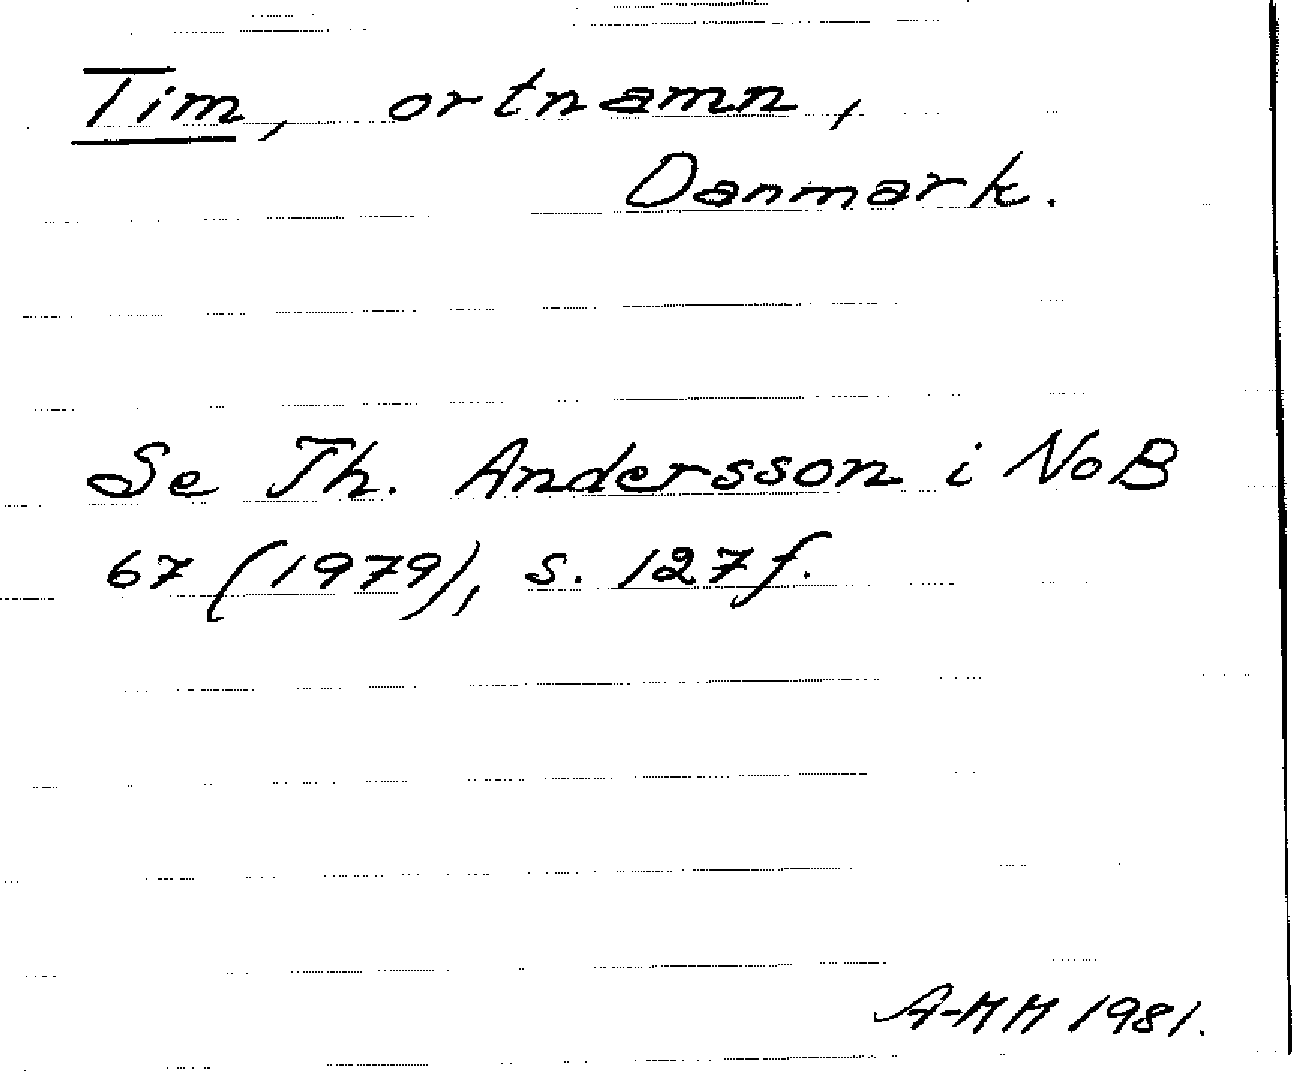 Tim, ortnamn,
Danmark.
Se Th. Andersson i NoB
67 (1979), s. 127f.
A-MM 1981.